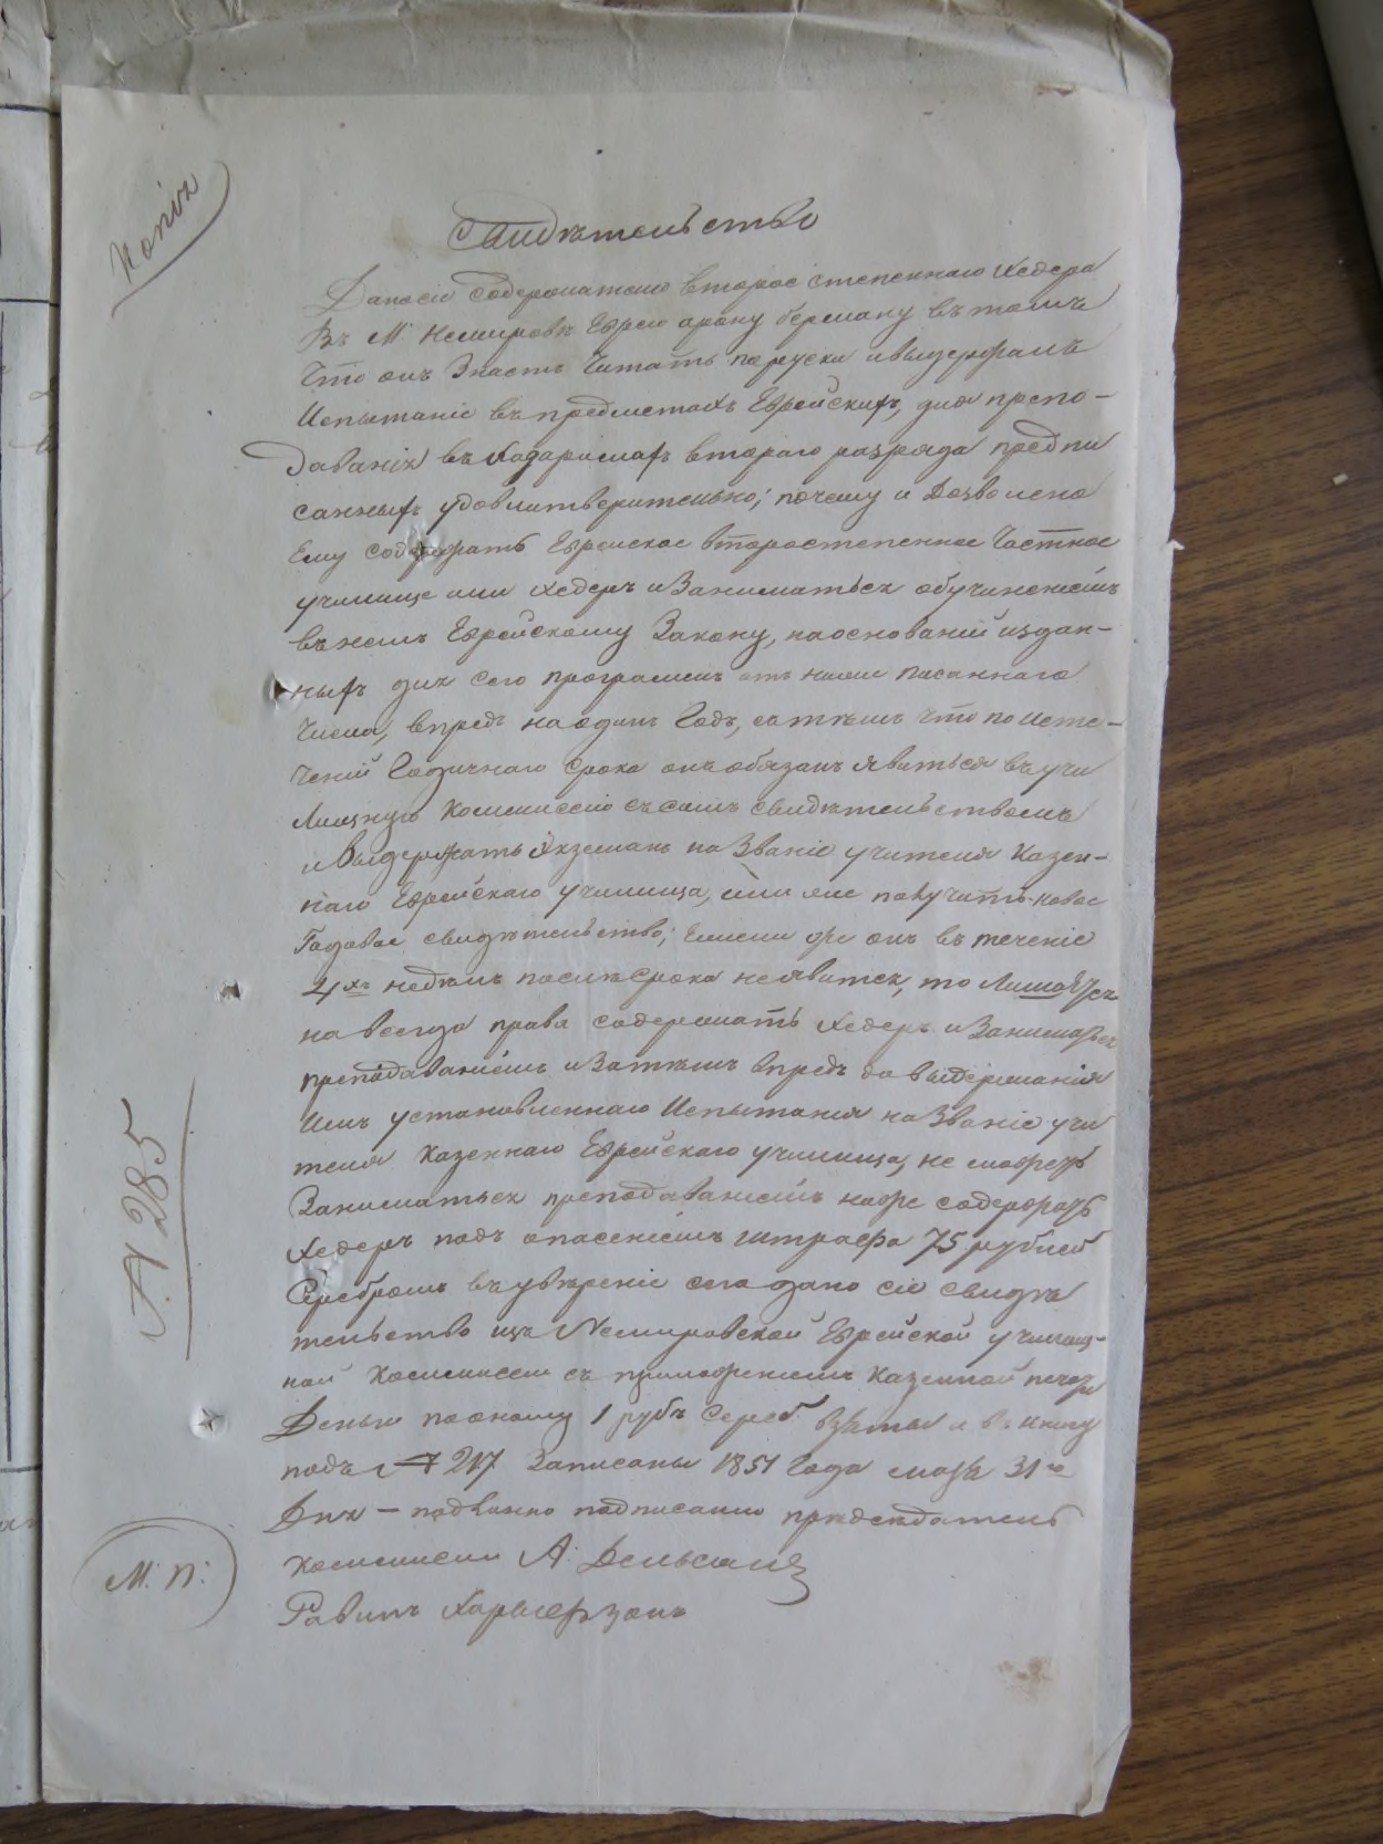 Копія
Свидѣтельство
Дано сіе содержателю второстепеннаго хедера
Въ М. Немировѣ Еврею арону берману въ томъ
Что онъ Знаетъ Читать поруски ивыдержалъ
Испытаніе въ предметахъ Еврейскихъ, для препо-
даванія въ втораго разряда предпи
санныхъ удовлитверительно; почему и Дозволено
Ему содержать Еврейское второстепенное Частное
училище или хедеръ и Заниматься обучиніемъ
въ немъ Еврейскому Закону, на основаніи издан-
ныхъ для сего програмъ отъ ниже писаннаго
Числа, впредь на одинъ Годъ, съ тѣмъ что по исте-
ченій Годичнаго Срока онъ обязанъ явиться въ учи
Лищную Коммиссію съ симъ свидѣтельствомъ
и Выдержать Экземанъ на Званіе учителя Казен-
наго Еврейскаго училища, или же получить новое
Годовое свидѣтельство; Ежели же онъ въ теченіе
4хъ недѣль послѣ срока неявится, то
на всегда права содержать хедеръ и Заниматься
преподаваніемъ и Затѣмъ впредь до выдержанія
Имъ установленнаго Испытанія на Званіе учи
теля Казеннаго Еврейскаго училища, не можетъ
Заниматься преподаваніемъ ниже содержать
хедеръ подъ опасеніемъ штрафа 75 рублей
Серебромъ въ увѣреніе сего дано сіе свидѣ
тельство изъ Немировской Еврейской училищ-
ной Коммиссіи съ приложеніемъ Казенной печати
Деньги пооному 1 рубъ Сереб. взяты и въ книгу
подъ № 217 Записаны 1851 Года мая 31го
Дня – подлинно подписали предсѣдатель
коммиссіи А.
Равинъ
№ 285
М. П.